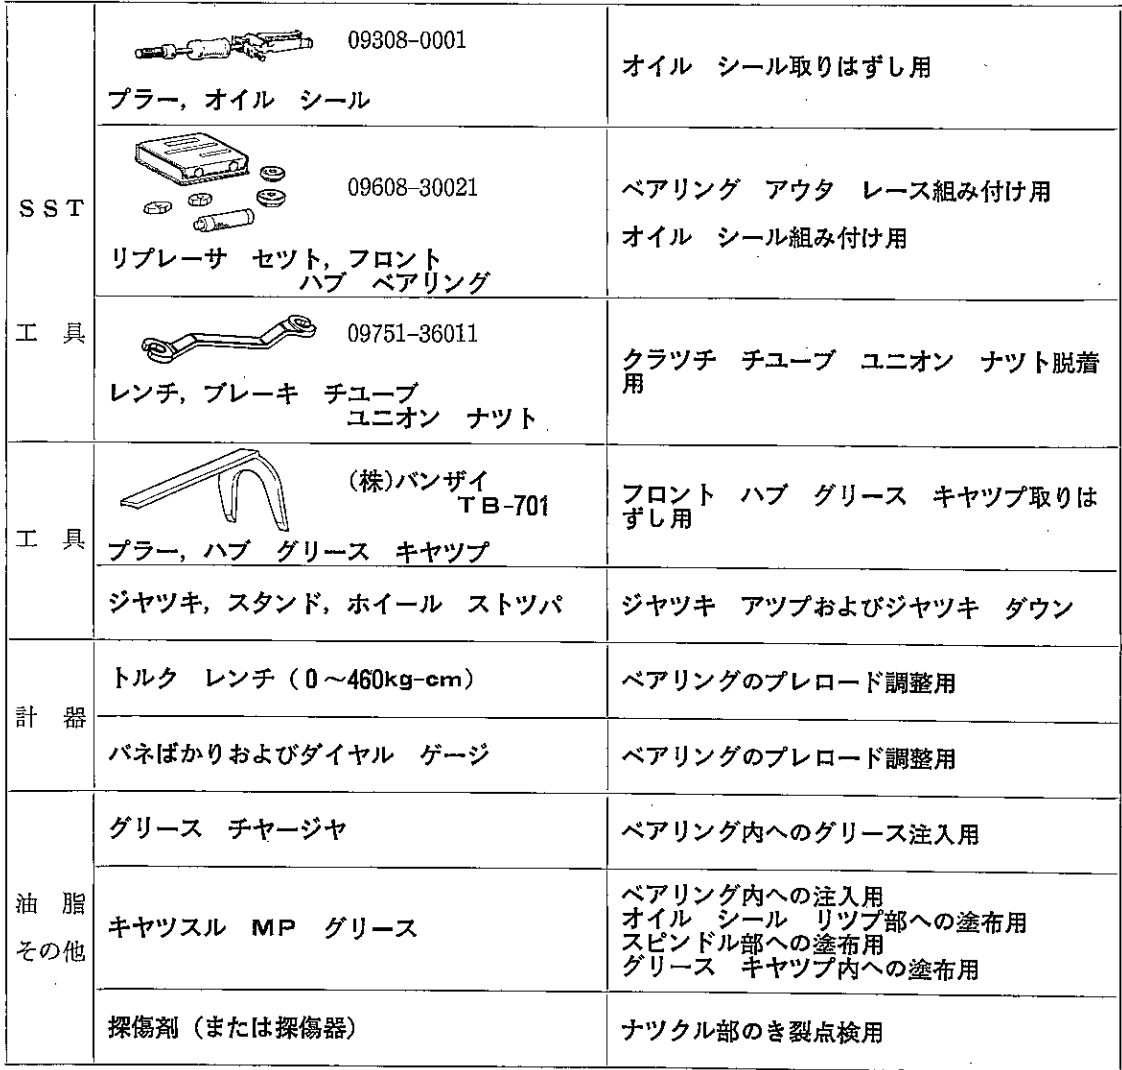 09308-0001
プラー，オイル　シール
オイル　シール取りはずし用
SST
09608-30021
リプレーサ　セツト，フロント
ハブ　ベアリング
ベアリング　アウタ　レース組み付け用
オイル　シール組み付け用
工　具
09751-36011
レンチ，ブレーキ　チユーブ
ユニオン　ナツト
クラツチ　チユーブ　ユニオン　ナツト脱着
用
工　具
(株)バンザイ
TB-701
プラー，ハブ　グリース　キヤツプ
フロント　ハブ　グリース　キヤツプ取りは
ずし用
ジヤツキ，スタンド，ホイール　ストツパ
ジヤツキ　アツプおよびジヤツキ　ダウン
計　器
トルク　レンチ（0～460kg-cm）
ベアリングのプレロード調整用
バネばかりおよびダイヤル　ゲージ
ベアリングのプレロード調整用
油　脂
その他
グリース　チヤージヤ
ベアリング内へのグリース注入用
キヤツスル　MP　グリース
ベアリング内への注入用
オイル　シール　リツプ部への塗布用
スピンドル部への塗布用
グリース　キヤツプ内への塗布用
探傷剤（または探傷器）
ナツクル部のき裂点検用